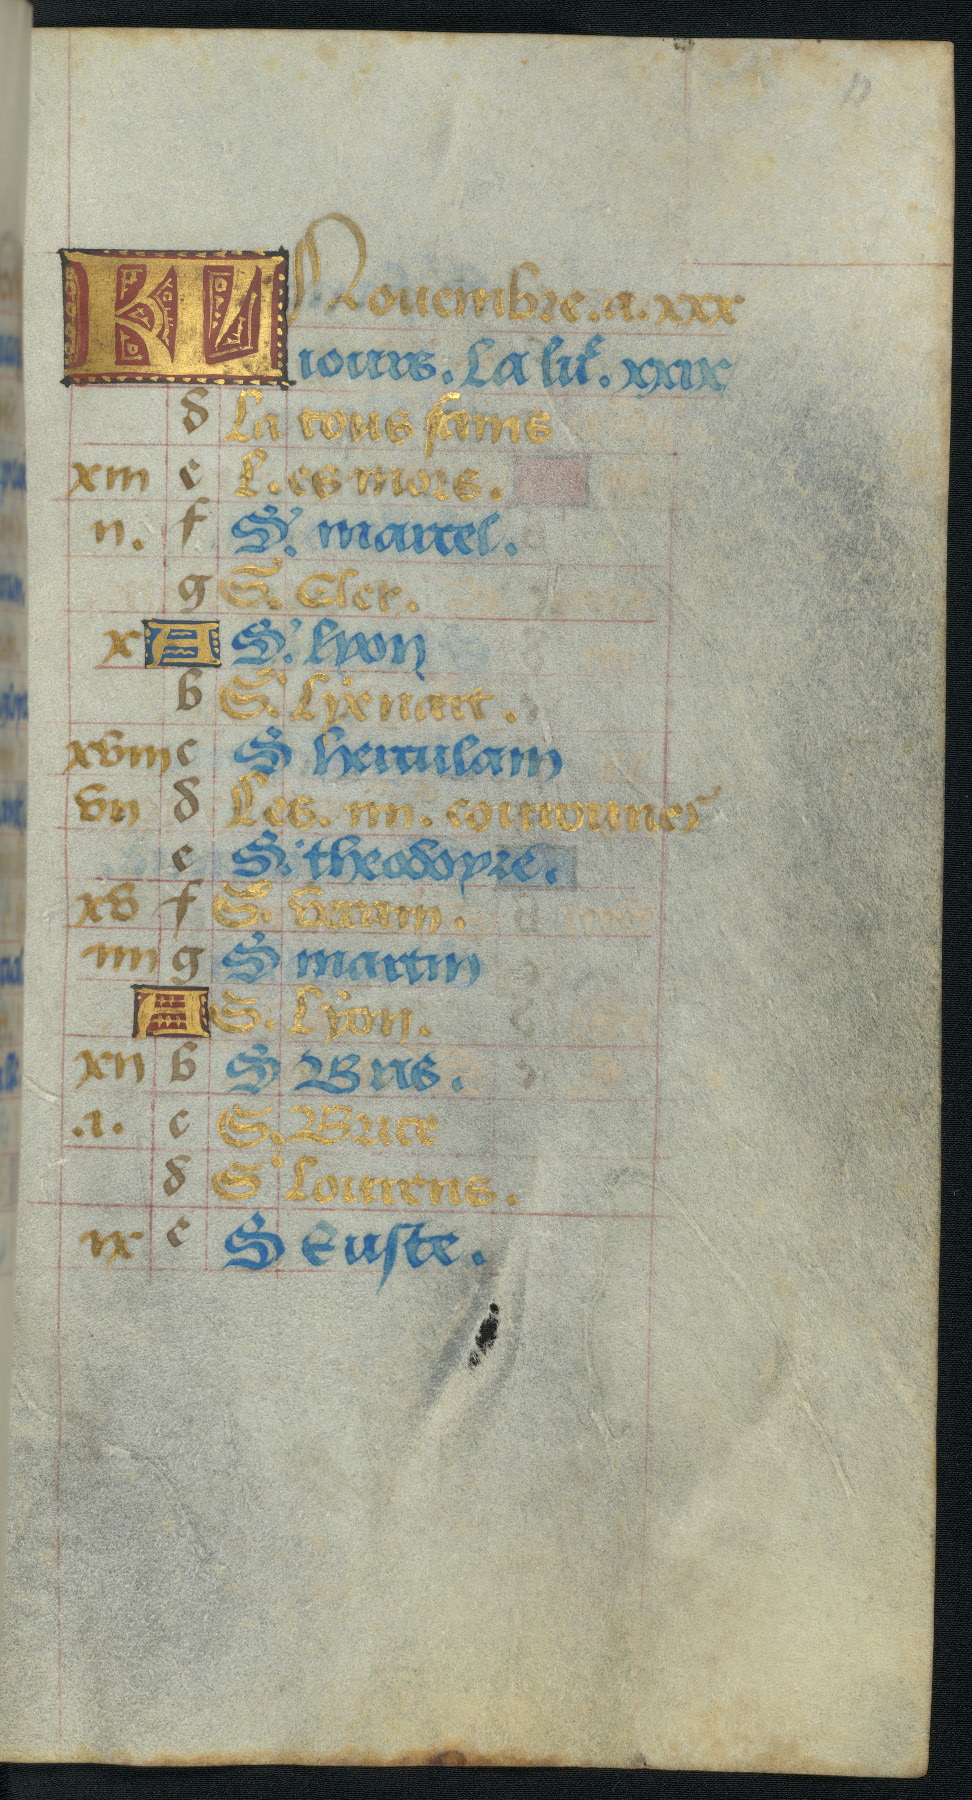 KL Nouembre. a. xxx
iours. La lu͂e. xxix
d La tous sains
xiii e L. es mors.
ii. f S'. martel.
g S. Cler.
x A S'. lyon
b S'. Lyenart.
xviii c S herculain
vii d Les. iiii. couronnes
e S'. theodoyre.
xv f S. verain.
iiii g S martin
A S. Lyon.
xii b S Bris.
.i. c S. Brice
d S' Lourens.
ix e S Euste.